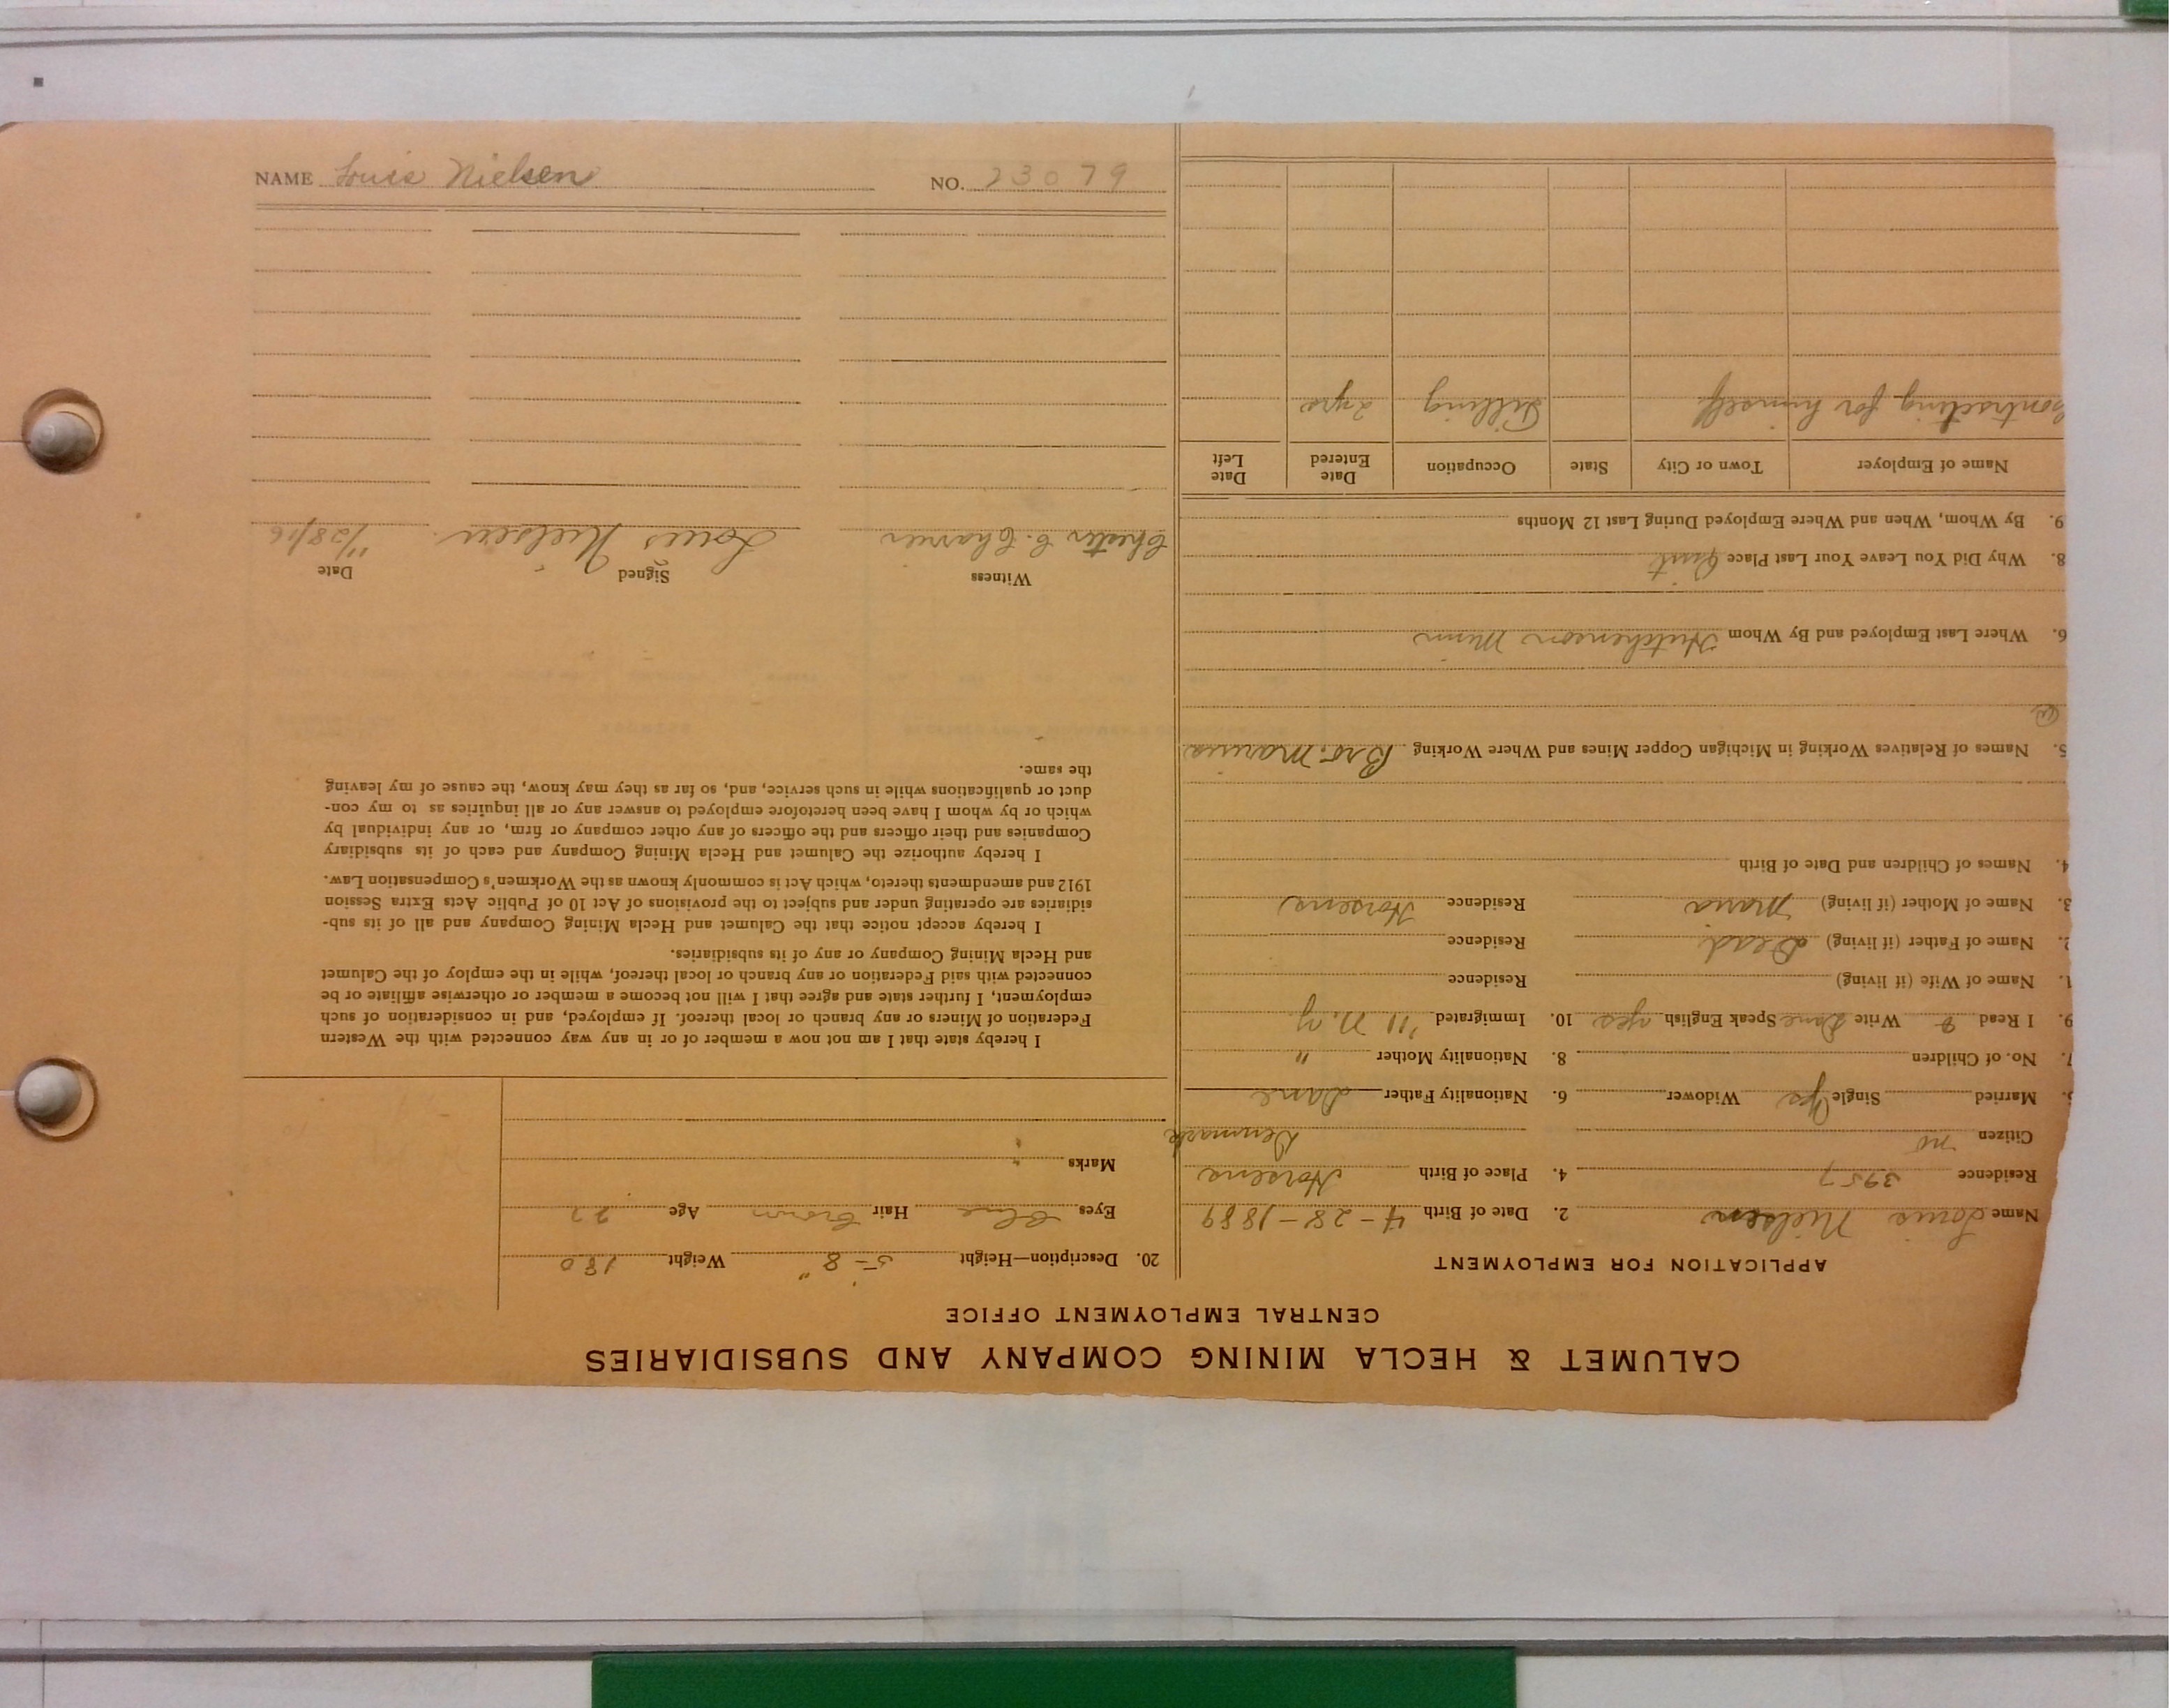 NAME Louis Nielsen NO. 23079
CALUMET & HECLA MINING COMPANY AND SUBSIDIARIES
CENTRAL EMPLOYMENT OFFICE
APPLICATION FOR EMPLOYMENT
Name Louis Nielsen 2. Date of Birth 4-28-1889
Residence 3957 4. Place of Birth Horsens
Citizen no Denmark
Married Single yes Widower 6. Nationality Father Dane
7. No. of Children 8. Nationality Mother "
9. I Read & Write Dane Speak English yes 10. Immigrated '11 N.Y.
1. Name of Wife (if living) Residence
2. Name of Father (if living) Dead Residence
3. Name of Mother (if living) Maria Residence Horsens
4. Names of Children and Date of Birth
5. Names of Relatives Working in Michigan Copper Mines and Where Working Bro.
6. Where Last Employed and By Whom Hutchenson Minn
8. Why Did You Leave Your Last Place Quit
9. By Whom, When and Where Employed During Last 12 Months
Name of Employer Town or City State Occupation Date Entered Date Left
Contracting for himself Tilling 2 yrs
20. Description—Height 5'-8" Weight 180
Eyes Blue Hair Brown Age 27
Marks
I hereby state that I am not now a member of or in any way connected with the Western
Federation of Miners or any branch or local thereof. If employed, and in consideration of such
employment, I further state and agree that I will not become a member or otherwise affiliate or be
connected with said Federation or any branch or local thereof, while in the employ of the Calumet
and Hecla Mining Company or any of its subsidiaries.
I hereby accept notice that the Calumet and Hecla Mining Company and all of its sub-
sidiaries are operating under and subject to the provisions of Act 10 of Public Acts Extra Session
1912 and amendments thereto, which Act is commonly known as the Workmen's Compensation Law.
I hereby authorize the Calumet and Hecla Mining Company and each of its subsidiary
Companies and their officers and the officers of any other company or firm, or any individual by
which or by whom I have been heretofore employed to answer any or all inquiries as to my con-
duct or qualifications while in such service, and, so far as they may know, the cause of my leaving
the same.
Witness Signed Date
Chester C. Louis Nielsen 11/28/16